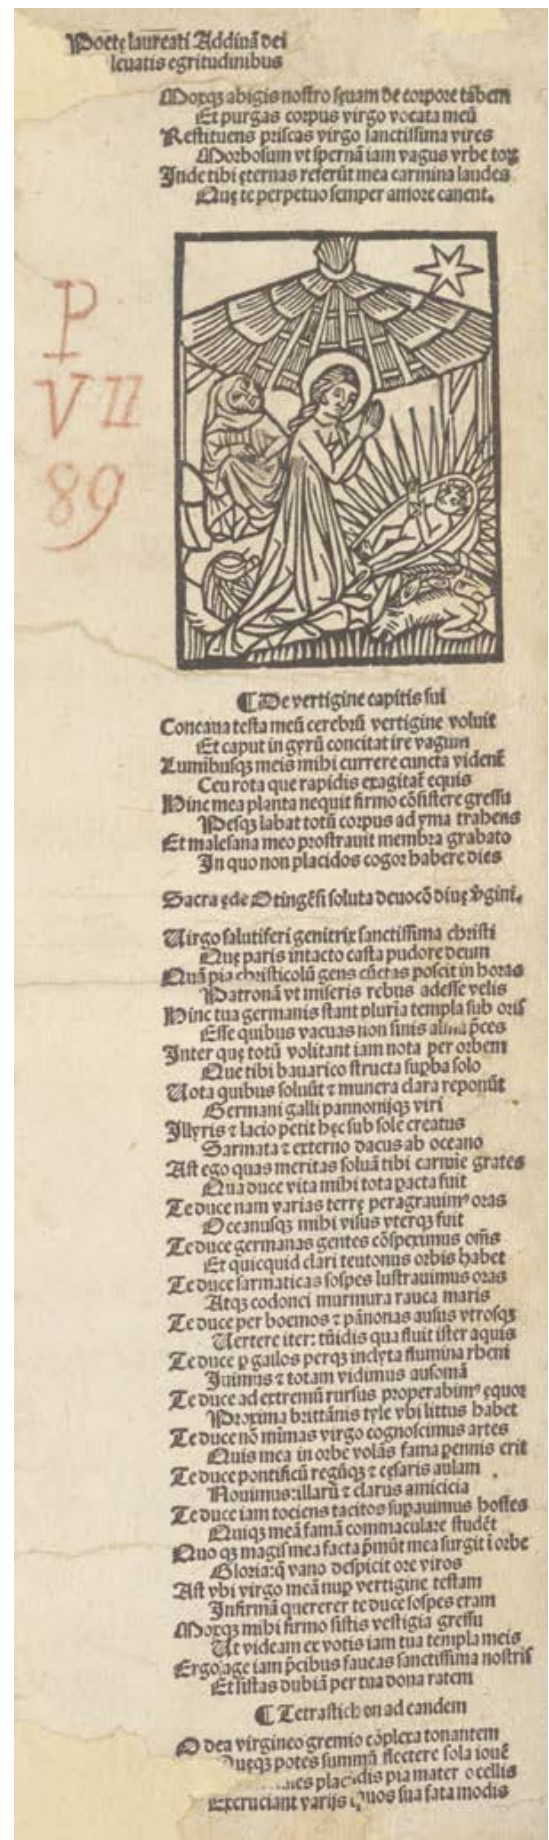 Poetę laureati Addinā dei
leuatis egritudinibus
Morqꝫ abigis nostro sęuam de corpore tābem
Et purgas corpus virgo vocata meū
Restituens priscas virgo sanctissima vires
Morbosum vt spernā iam vagus vrbe torꝫ
Inde tibi ęternas referūt mea carmina laudes
Quę te perpetuo semper amore canent.
P
VII
89
¶ De vertigine capitis sui
Concaua testa meū cerebrū vertigine voluit
Et caput in gyrū concitat ire vagum
Luminibusqꝫ meis mihi currere cuncta videnť
Ceu rota que rapidis exagitať equis
Hinc mea planta nequit firmo cōsistere gressu
Pesqꝫ labat totū corpus ad yma trahens
Et malesana meo prostrauit membra grabato
In quo non placidos cogor habere dies
Sacra ęde Otingēsi soluta deuocō diuę v̄gini.
Uirgo salutiferi genitrix sanctissima christi
Quę paris intacto casta pudore deum
Quā pia christicolū gens cūctas poscit in horas
Patronā vt miseris rebus adesse velis
Hinc tua germanis stant pluria templa sub oris
Esse quibus vacuas non sinis alma p̄ces
Inter quę totū volitant iam nota per orbem
Que tibi bauarico structa supba solo
Uota quibus soluūt ⁊ munera clara reponūt
Germani galli pannonijqꝫ viri
Illyris ⁊ lacio petit hęc sub sole creatus
Sarmata ⁊ externo dacus ab oceano
Ast ego quas meritas soluā tibi carmīe grates
Qua duce vita mihi tota pacta fuit
Te duce nam varias terrę peragrauimꝰ oras
Oceanusqꝫ mihi visus vterqꝫ fuit
Te duce germanas gentes cōspeximus om̄s
Et quicquid clari teutonus orbis habet
Te duce sarmaticas sospes lustrauimus oras
Atqꝫ codonci murmura rauca maris
Te duce per boemos ⁊ pānonas ausus vtrosqꝫ
Uertere iter: tūidis qua fluit ister aquis
Te duce ꝑ gallos perqꝫ inclyta flumina rheni
Iuimus ⁊ totam vidimus ausoniā
Te duce ad extremū rursus properabimꝰ ęquor
Proxima brittānis tyle vbi littus habet
Te duce nō mīmas virgo cognoscimus artes
Quis mea in orbe volās fama pennis erit
Te duce pontificū regūqꝫ ⁊ cęsaris aulam
Nouimus: illarū ⁊ clarus amicicia
Te duce iam tociens tacitos supauimus hostes
Quiqꝫ meā famā commaculare studēt
Quo qꝫ magis mea facta p̄mūt mea surgit ī orbe
Gloria: q̄ vano despicit ore viros
Ast vbi virgo meā nup vertigine testam
Infirmā quererer te duce sospes eram
Morqꝫ mihi firmo sistis vestigia gressu
Ut videam ex votis iam tua templa meis
Ergo age iam p̄cibus faueas sanctissima nostris
Et sistas dubiā per tua dona ratem
¶ Tetrastichon ad eandem
O dea virgineo gremio cōplexa tonantem
Quęqꝫ potes summū flectere sola iouē
placidis pia mater ocellis
Excruciant varijs quos sua fata modis